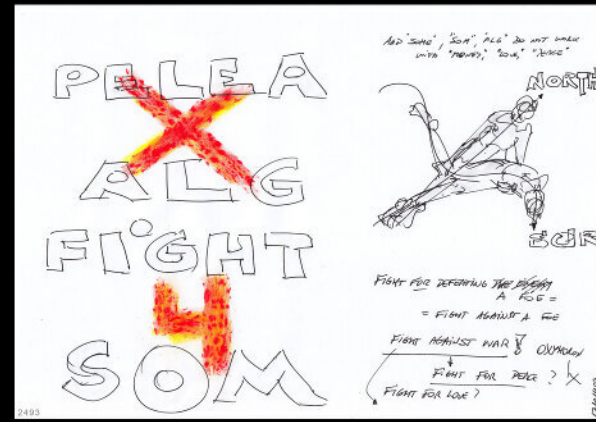 PELEA
X
ALG
FIGHT
4
SOM
ADD "SOME", "SOM", "ALG" DO NOT WORK
WITH "MONEY," "LOVE,"
NORTH
SUR
FIGHT FOR DEFEATING THE ENEMY
A FOE =
= FIGHT AGAINST A FOE
FIGHT AGAINST WAR
OXYMORON
FIGHT FOR PEACE ?
FIGHT FOR LOVE ?
2493